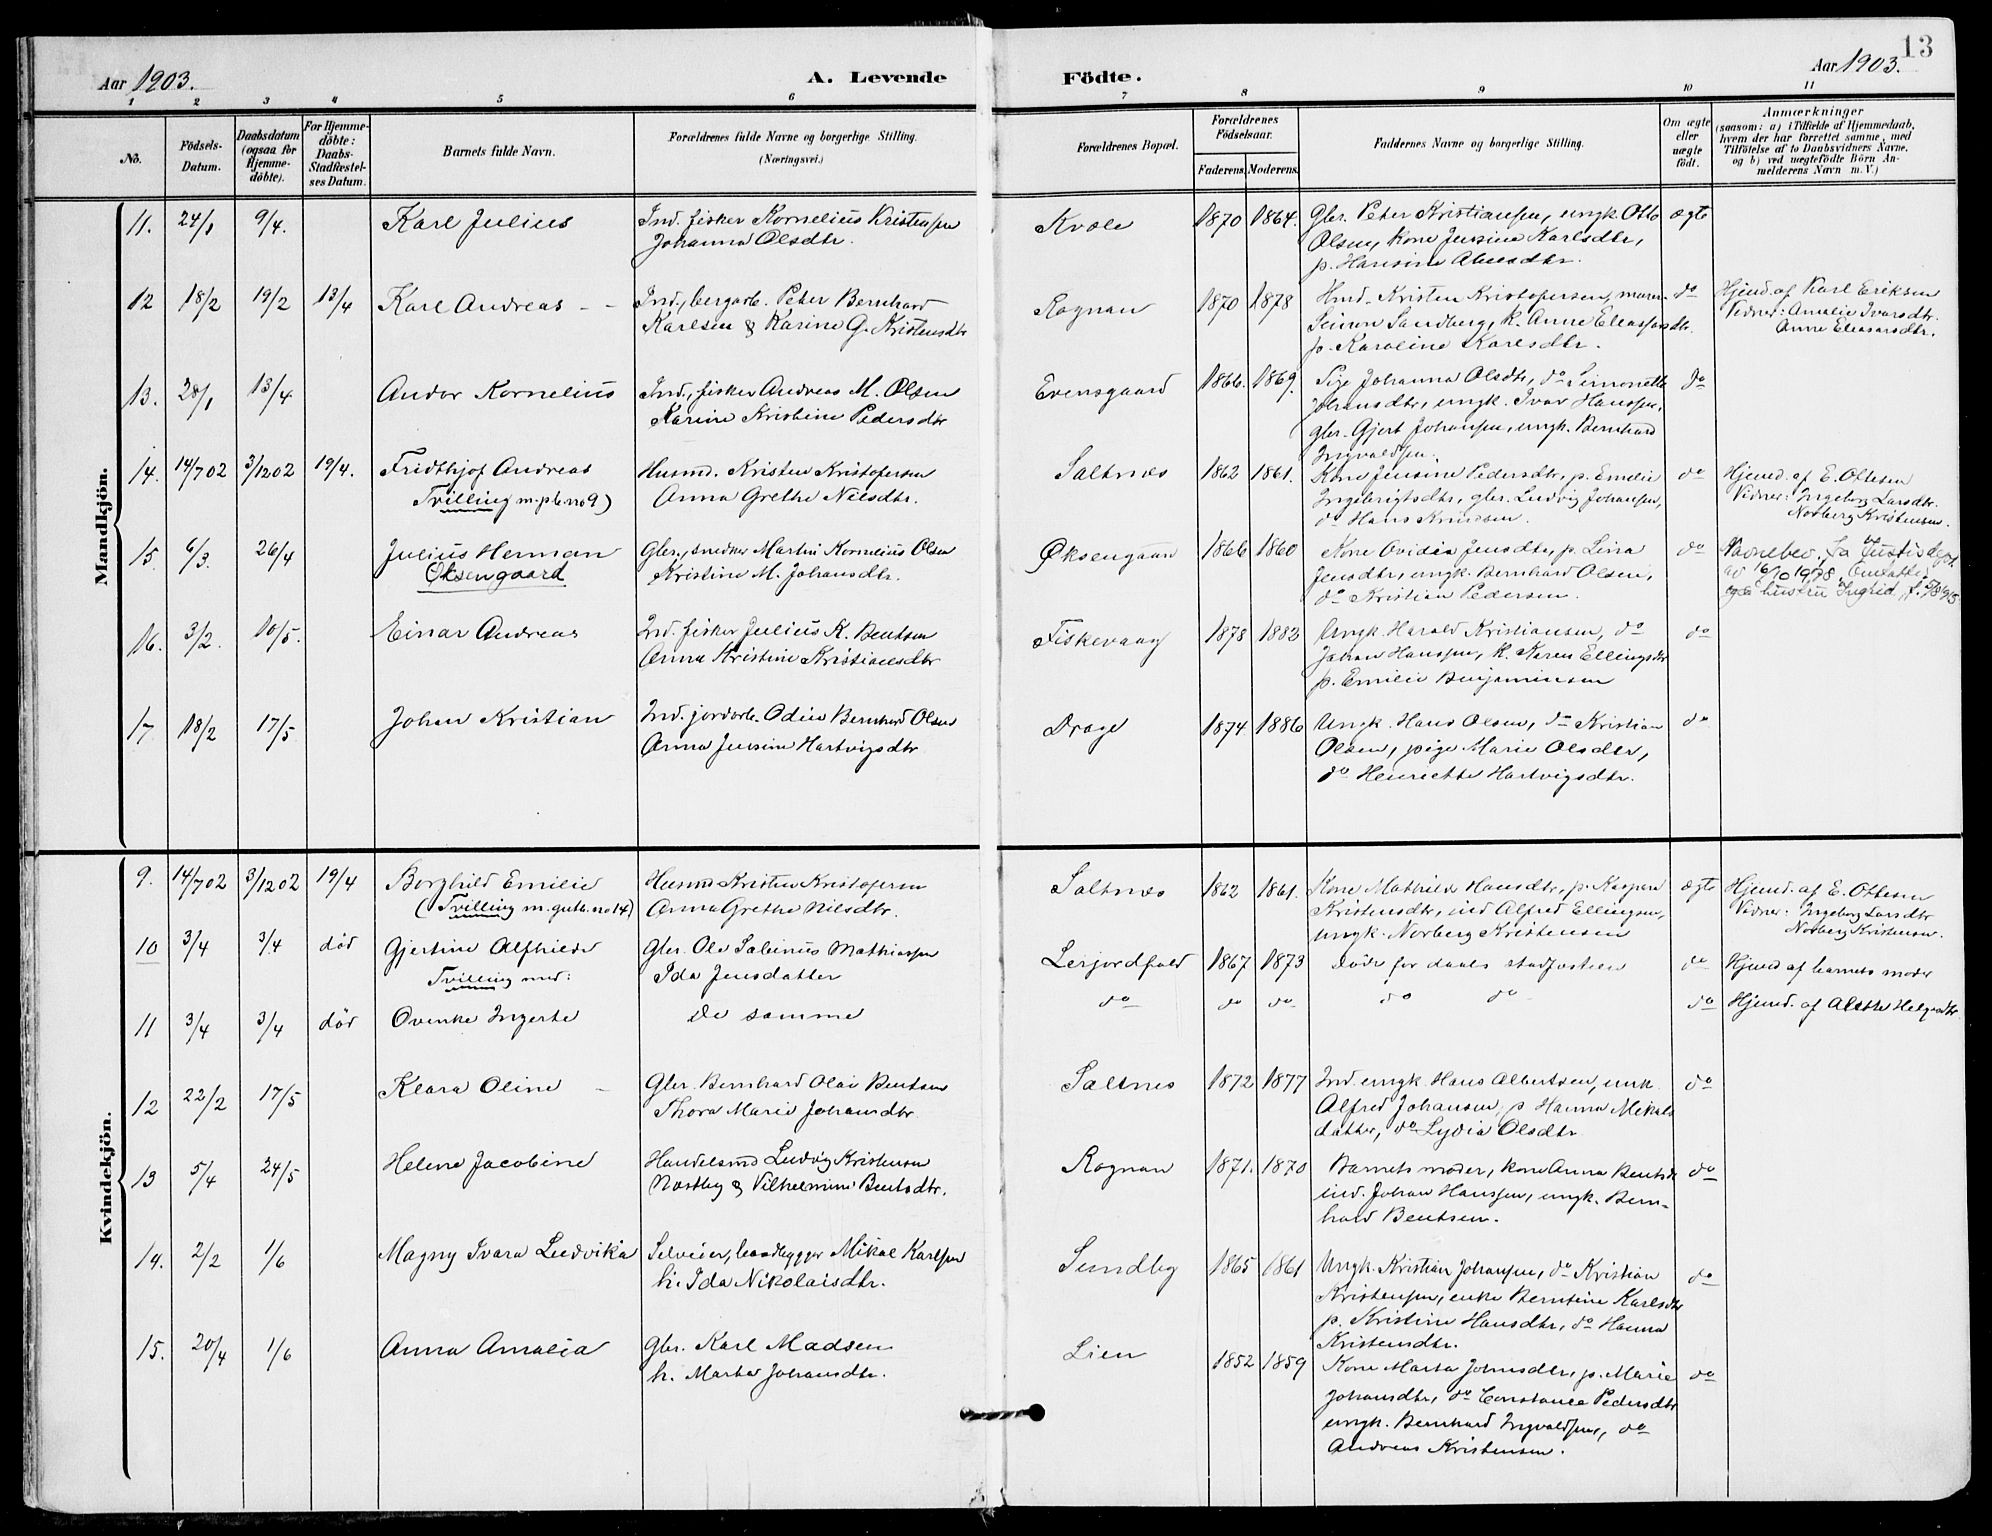 13
Aar 1903. A. Levende Födte. Aar 1903.
1 2 3 4 5 6 7 8 9 10 11
No.
Födsels-
Datum.
Daabsdatum
(ogsaa for
Hjemme-
döbte).
For Hjemme-
döbte:
Daabs-
Stadfæstel-
ses Datum.
Barnets fulde Navn.
Forældrenes fulde Navne og borgerlige Stilling.
(Næringsvei.)
Forældrenes Bopæl.
Forældrenes
Födselsaar.
Faderens. Moderens.
Faddernes Navne og borgerlige Stilling.
Om ægte
eller
uægte
födt.
Anmærkninger
(saasom: a) i Tilfælde af Hjemmedaab,
hvem der har forrettet samme, med
Tilföielse af to Daabsvidners Navne,
og b) ved uægtefödte Börn An-
melderens Navn m. V.)
Mandkjön.
11. 24/1 9/4. Karl Julius
Ind. fisker Kornelius Kristensen
Johanna Olsdtr.
Kvæle 1870 1864.
Gbr. Peter Kristiansen, ungk. Otto
Olsen, kone Jensine Karlsdtr,
p. Hansine
ægte
12 18/2 19/2 13/4 Karl Andreas -
Ind., bergarb. Peter Bernhard
Karlsen & Karine G. Kristensdtr
Rognan 1870 1878
Hmd. Kristen Kristofersen, murer
Simon Sandberg, k. Anne Eleasarsdtr.
p. Karoline Karlsdtr.
do
Hjmd. af Karl Eriksen
Vidner: Amalie Ivarsdtr.
Anne Eleasarsdtr.
13. 28/1 13/4 Andor Kornelius
Ind., fisker Andreas M. Olsen
Karine Kristine Pedersdtr
Evensgaard 1866. 1869.
Pige Johanna Olsdtr, do Simonette
Johansdtr, ungk. Ivar Hanssen,
gbr. Gjert Johansen, ungk. Bernhard
Ingvaldsen.
do
14. 14/7 02 3/12 02 19/4. Fridthjof Andreas
Tvilling m. pb. no 9)
Husmd. Kristen Kristofersen
Anna Grethe Nilsdtr.
Saltnes 1862 1861.
Kone Jensine Pedersdtr, p. Emelie
Ingebrigtsdtr, gbr. Ludvig Johansen,
do Hans Knudsen.
do
Hjmd. af E. Ottesen
Vidner: Ingeborg Larsdtr.
Norberg Kristensen.
15. 6/3. 26/4 Julius Herman
Øksengaard
Gbr., snedker Martin Kornelius Olsen
Kristine M. Johansdtr.
Øksengaard 1866 1860
Kone Ovidia Jensdtr, p. Lina
Jensdtr, ungk. Bernhard Olsen,
do Kristian Pedersen.
do
Navnebev. fra Justisdept.
av 16/10 1978. Omfatter
også hustru Ingrid,
16. 3/2. 10/5. Einar Andreas
Ind. fisker Julius K. Bentsen
Anna Kristine Kristiansdtr
Fiskevaag 1878 1882
Ungk. Harald Kristiansen, do
Johan Hanssen, k. Karen Ellingsdtr
p. Emilie Benjaminsen
do
17 18/2 17/5 Johan Kristian
Ind. jordarb. Odin Bernhard Olsen
Anna Jensine Hartvigsdtr
Drage 1874 1886
Ungk. Hans Olsen, do Kristian
Olsen, pige Marie Olsdtr,
do Henriette Hartvigsdtr.
do
Kvindekjön.
9. 14/7 02 3/12 02 19/4 Borghild Emilie
(Tvilling m. guttb. no 14)
Husmd Kristen Kristofersen
Anna Grethe Nilsdtr.
Saltnes 1862 1861.
Kone Mathilde Hansdtr, p. Kaspara
Kristensdtr, ind Alfred Ellingsen,
ungk. Norberg Kristensen
ægte
Hjmd. af E. Ottesen
Vidner: Ingeborg Larsdtr
Norberg Kristensen.
10 3/4 3/4. død Gjertine Alfhilde
Tvilling med:
Gbr. Ole Salinus Mathiassen
Ida Jensdatter
Lerjordfald 1867 1873
Døde for daabs stadfæstelsen
do
Hjmd af barnets moder
11 3/4 3/4 død Ovenke Ingerte
De samme
do do do do do do
Hjmd. af
12 22/2 17/5 Klara Oline -
Gbr. Bernhard Olai Bentsen
Thora Marie Johansdtr.
Saltnes 1872 1877
Ind. ungk. Hans Albertsen, unk.
Alfred Johansen, p Hanna Mikals
datter, do Lydia Olsdtr
do
13 5/4 24/5 Helene Jacobine
Handelsmd Ludvig Kristensen
Nostby & Vilhelmine Bentsdtr.
Rognan 1871. 1870
Barnets moder, kone Anna Bentsdtr
ind. Johan Hanssen, ungk. Bern-
hard Bentsen.
do
14. 2/2 1/6 Magny Ivara Ludvika
Selveier, baadbygger Mikal Karlsen
h. Ida Nikolaisdtr.
Sundby 1865 1861
Ungk. Kristian Johansen, do Kristian
Kristensen, enke Berntine Karlsdtr
p. Kristine Hansdtr, do Hanna
Kristensdtr.
do
15. 20/4 1/6 Anna Amalia
Gbr. Karl Madsen
h. Marta Johansdtr.
Lien 1852 1859
Kone Marta Johnsdtr, p. Marie
Johansdtr, do Constance Pedersdtr
ungk. Bernhard Ingvaldsen, do
Andreas Kristensen.
do